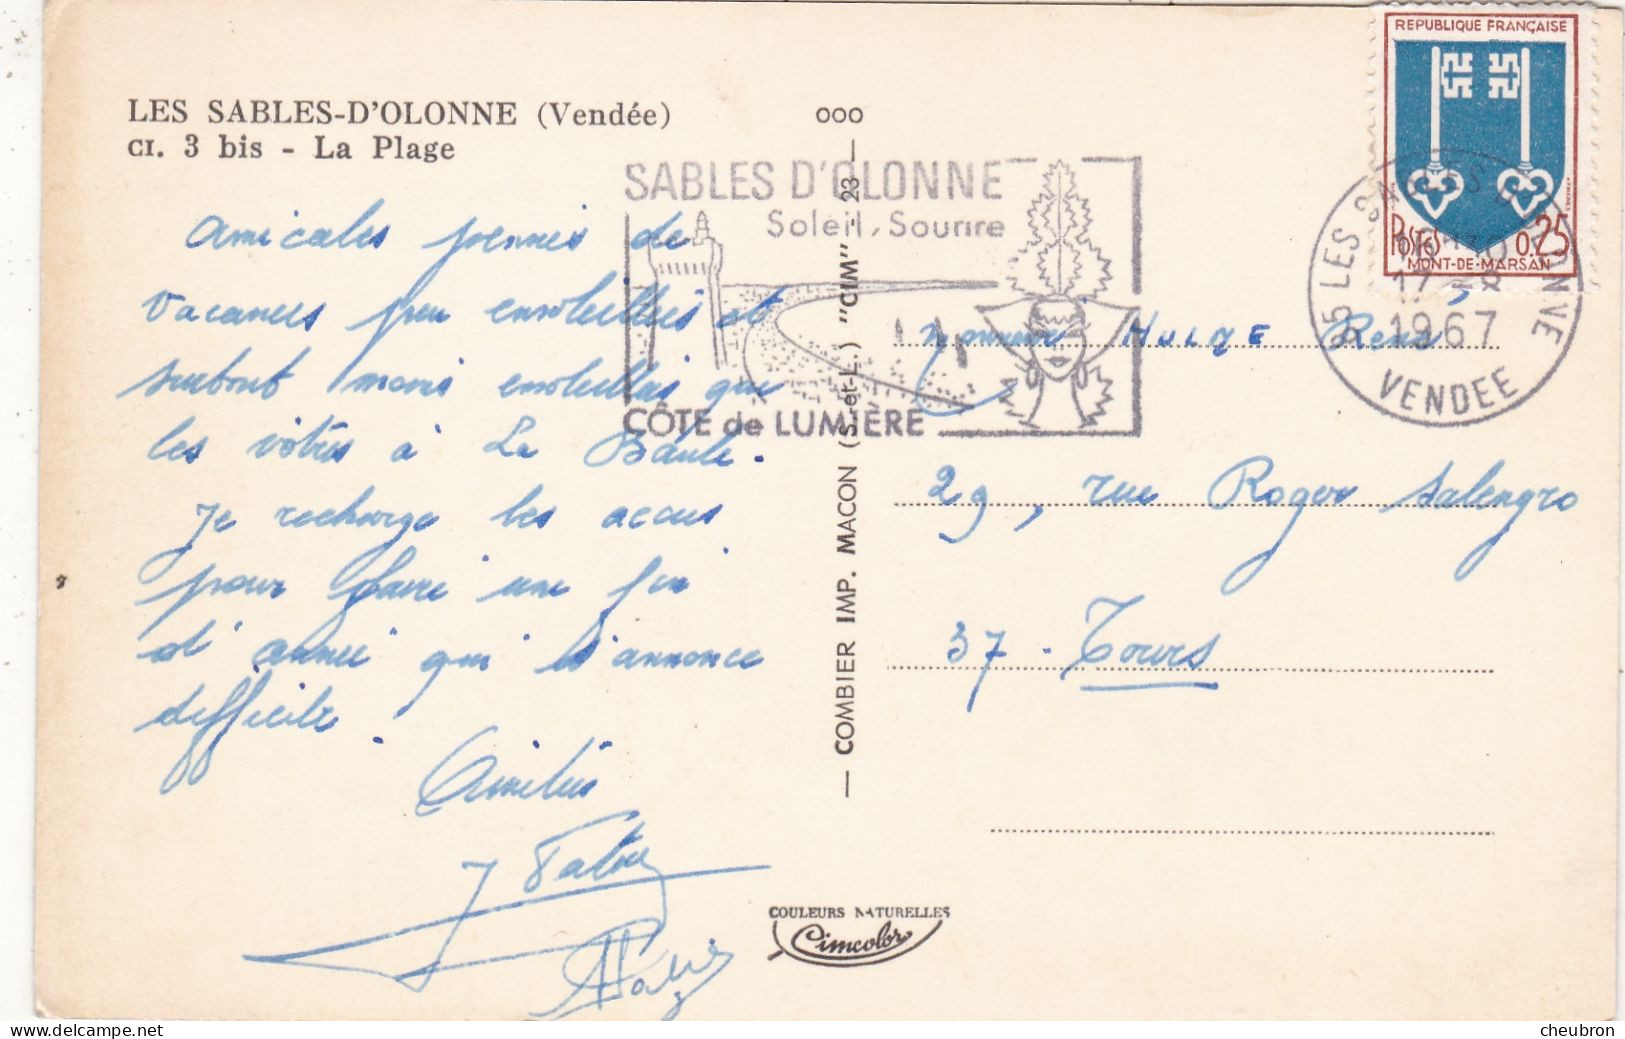 LES SABLES-D'OLONNE (Vendée)
CI. 3 bis - La Plage
Amicales pensées de
vacances peu ensoleillées et
surtout moins ensoleillées que
les vôtres à La Baule.
Je recharge les accus
pour faire une fin
d'année qui s'annonce
difficile.
Amitiés
SABLES D'OLONNE
Soleil, Sourire
CÔTE de LUMIÈRE
ooo
— COMBIER IMP. MACON (S.-et-L.) "CIM" - 23 —
COULEURS NATURELLES
Cimcolor
REPUBLIQUE FRANÇAISE
POSTES 0.25
MONT-DE-MARSAN
85 LES SABLES D'OLONNE
17 - 8
1967
VENDEE
Monsieur HULNE René
29, rue Roger Salengro
37 - Tours
cheubron